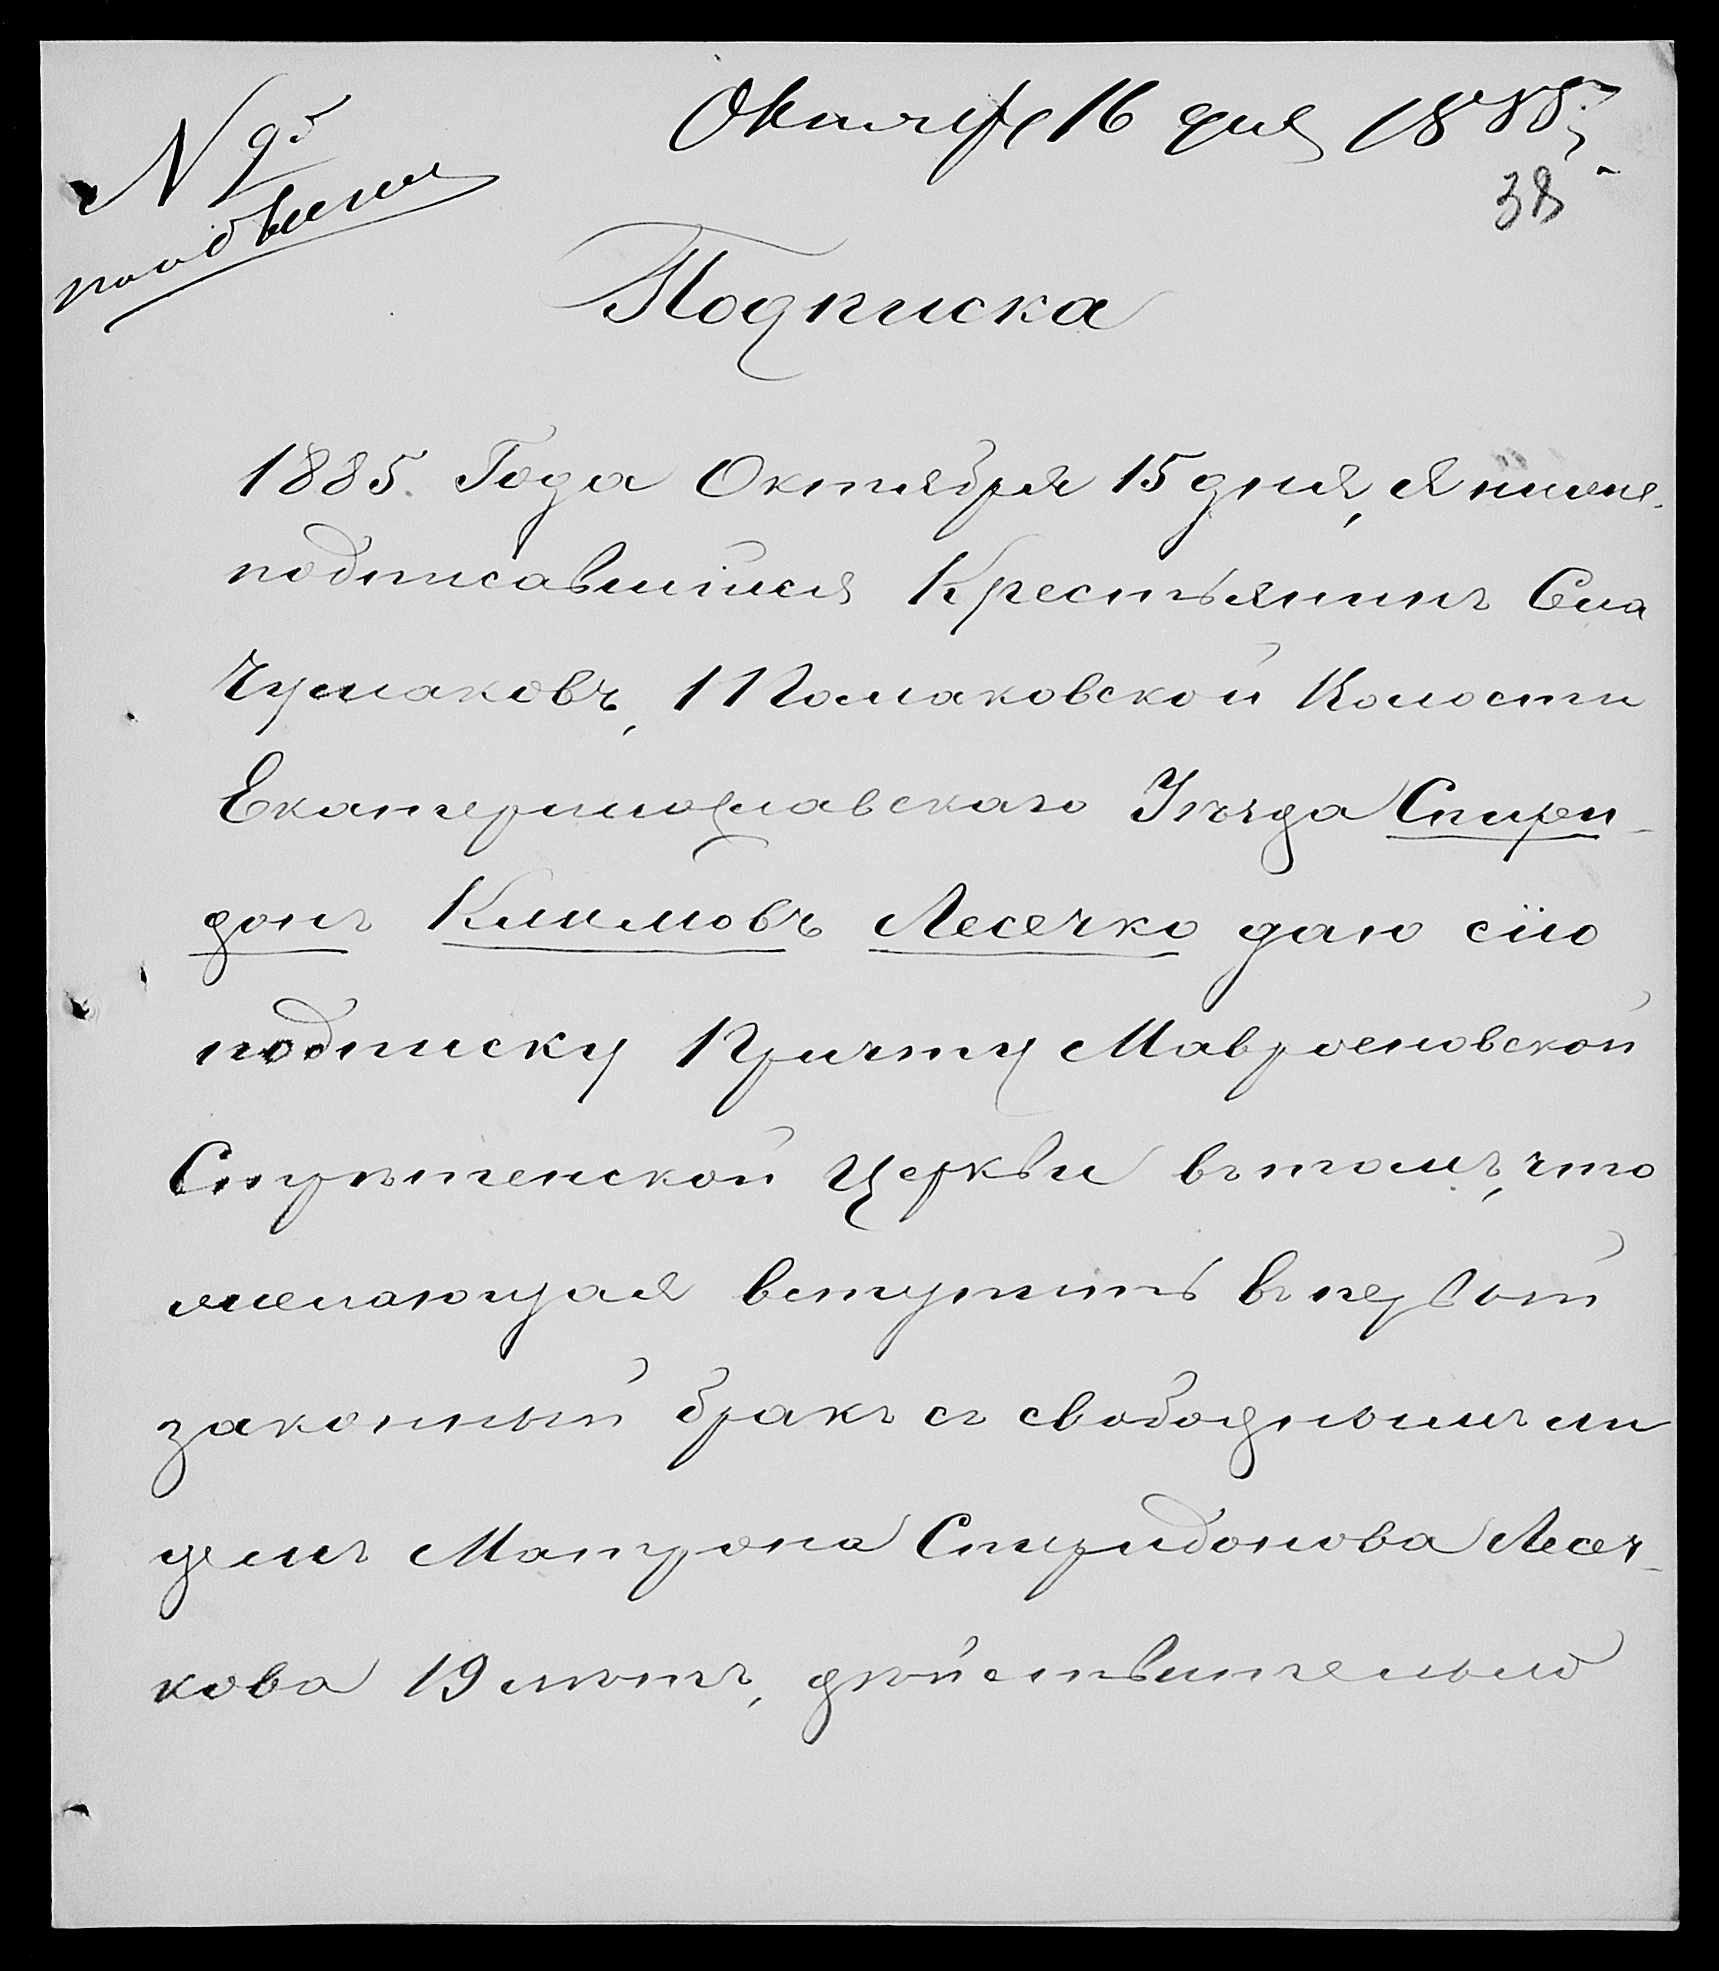 № 95
по обыску
Октября 16 дня 1885 г.
38
Подписка
1885. Года Октября 15 дня, я ниже-
подписавшійся Крестьянинъ Села
Чумаковъ, Томаковской Волости
Екатеринославскаго Уѣзда Спири-
донъ Климовъ Лесечко даю сію
подписку Причту Мавроеновской
Стрѣтенской Церкви въ томъ, что
желающая вступить въ первый
законный бракъ съ свободнымъ ли
цемъ Матрона Спиридонова Лесеч-
кова 19 лѣтъ, дѣйствительно